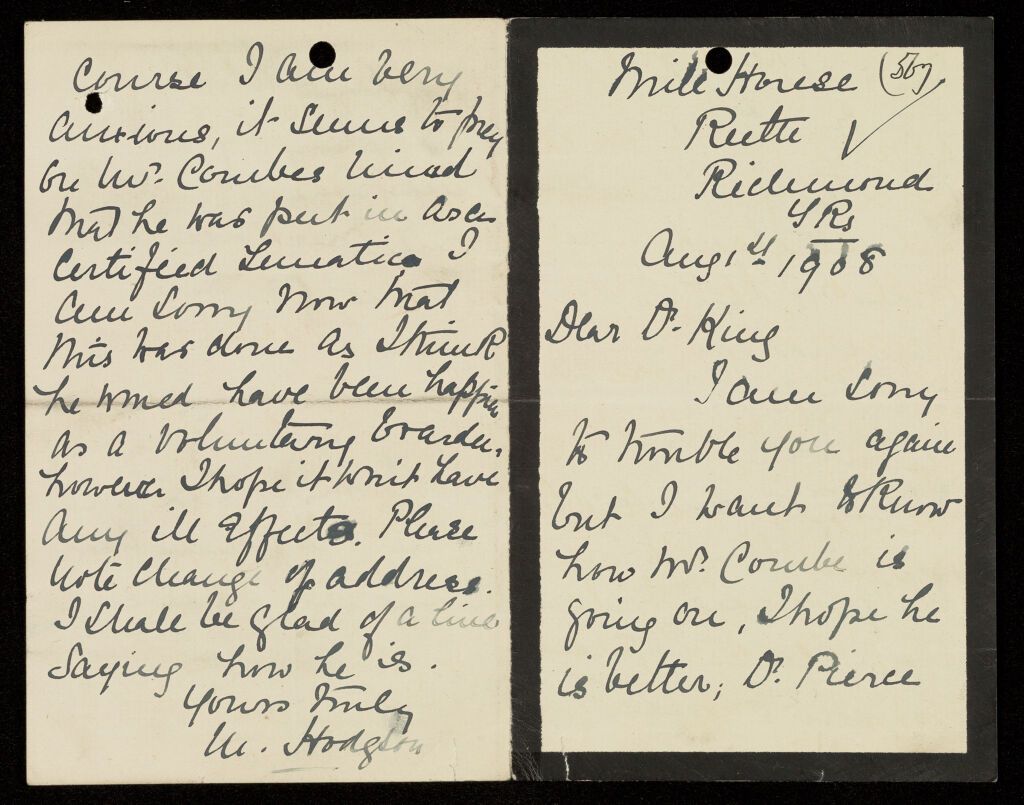 Mill House (567)
Reeth
Richmond
YRs
Aug 1st 1908
Dear Dr. King
I am sorry
to trouble you again
but I want to know
how Mr. Combe is
going on, I hope he
is better; Dr. Pierce
Course I am very
anxious, it seems to prey
on Mr. Combes mind
that he was put in as a
Certified Lunatic, I
am sorry now that
this was done as I think
he would have been happier
as a voluntary boarder,
however I hope it won't have
any ill effects. Please
note change of address.
I shall be glad of a line
saying how he is.
Yours truly
M. Hodgson